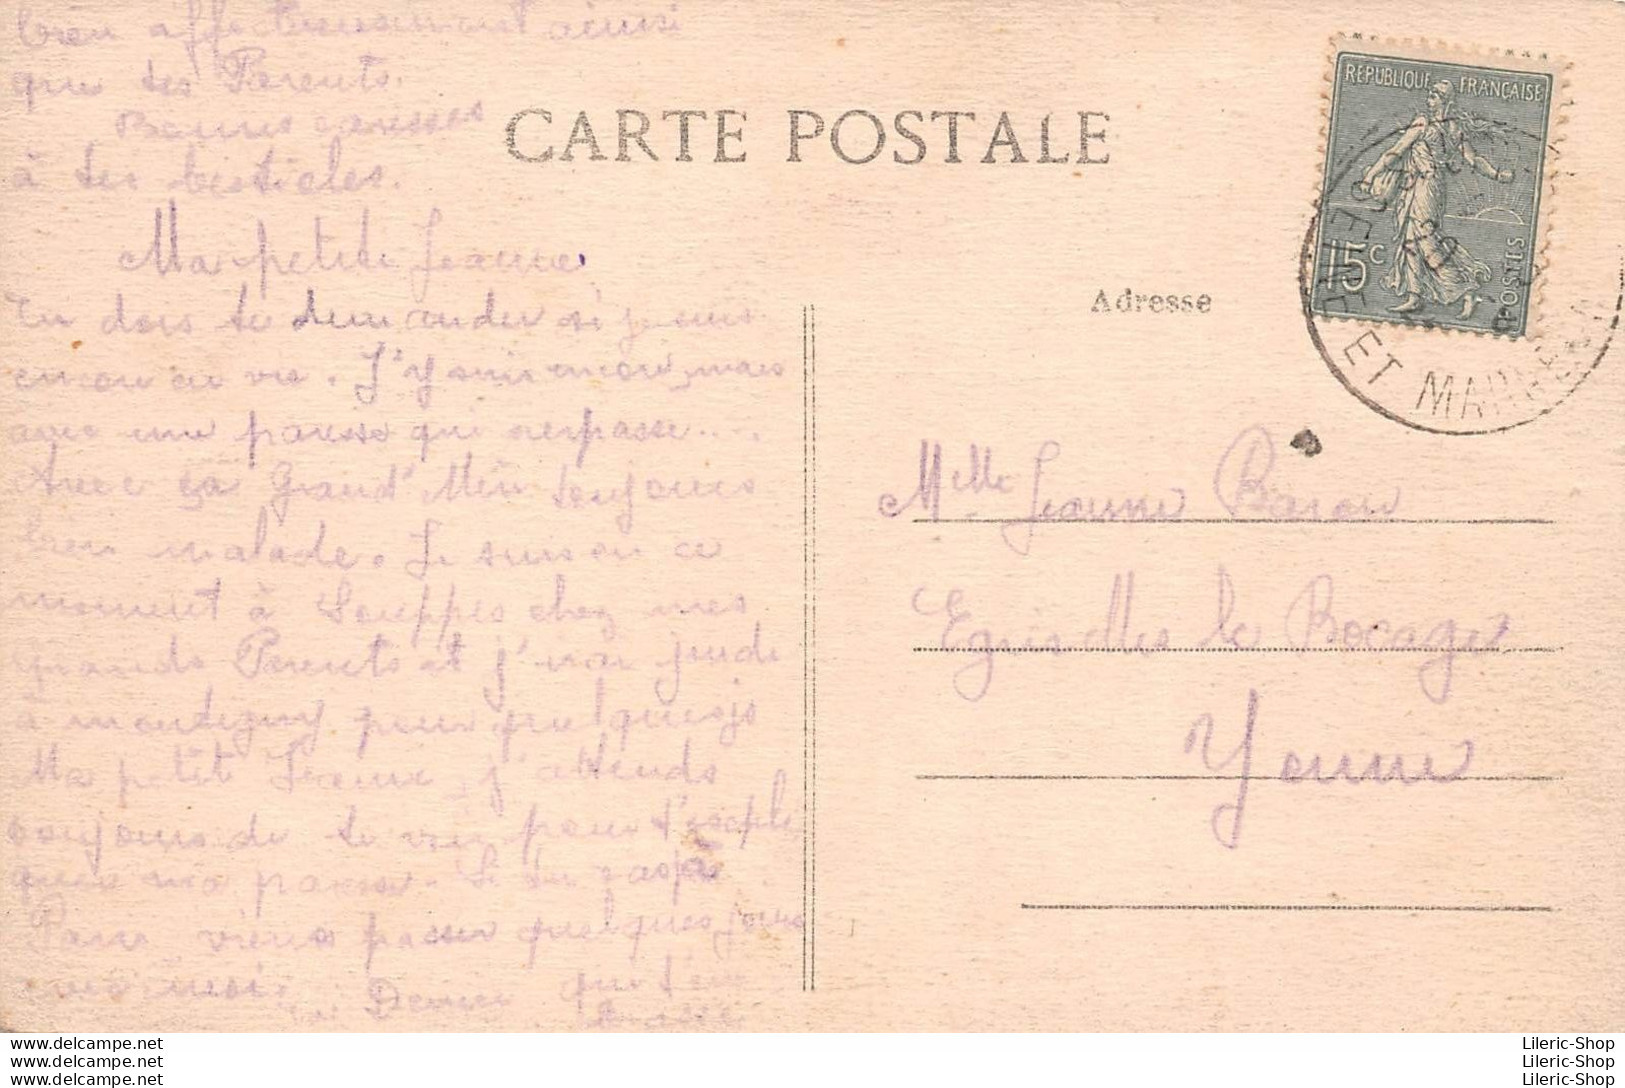 bien affectueusement ainsi
que tes Parents.
Bonnes caresses
à tes bestioles.
CARTE POSTALE
REPUBLIQUE FRANÇAISE
15c
POSTES
ET MARNE
Adresse
Ma petite Jeanne
Tu dois te demander si je suis
encore en vie. J'y suis encore, mais
avec une paresse qui surpasse...
Avec ça Grand'Mère toujours
bien malade. Je suis en ce
moment à Souppes chez mes
Grands Parents et j'irai jeudi
à Montigny pour quelques js
Ma petit Jeanne, j'attends
toujours de te voir pour
ma paresse. Si tu
viens passer quelques jours
moi.
Denise qui t'em-
brasse
Melle Jeanne Baron
Egriselles le Bocage
Yonne
www.delcampe.net
www.delcampe.net
www.delcampe.net
Lileric-Shop
Lileric-Shop
Lileric-Shop